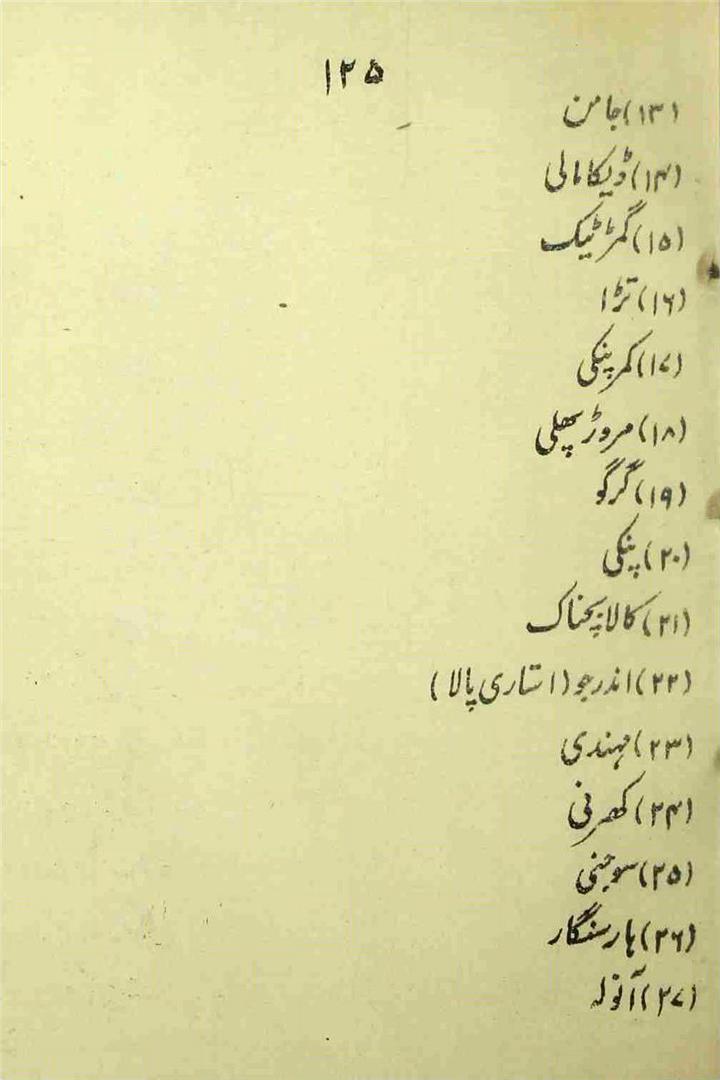 ۱۲۵
(۱۳) جامن
(۱۴) ڈیکامالی
(۱۵) گمڑٹیک
(۱۶) تڑا
(۱۷) کمرپنکی
(۱۸) مروڑپھلی
(۱۹) گرگو
(۲۰) پنکی
(۲۱) کالا
(۲۲) اندرجو (استاری پالا)
(۲۳) مہندی
(۲۴) کھرنی
(۲۵) سوجنی
(۲۶) ہارسنگار
(۲۷) آنولہ